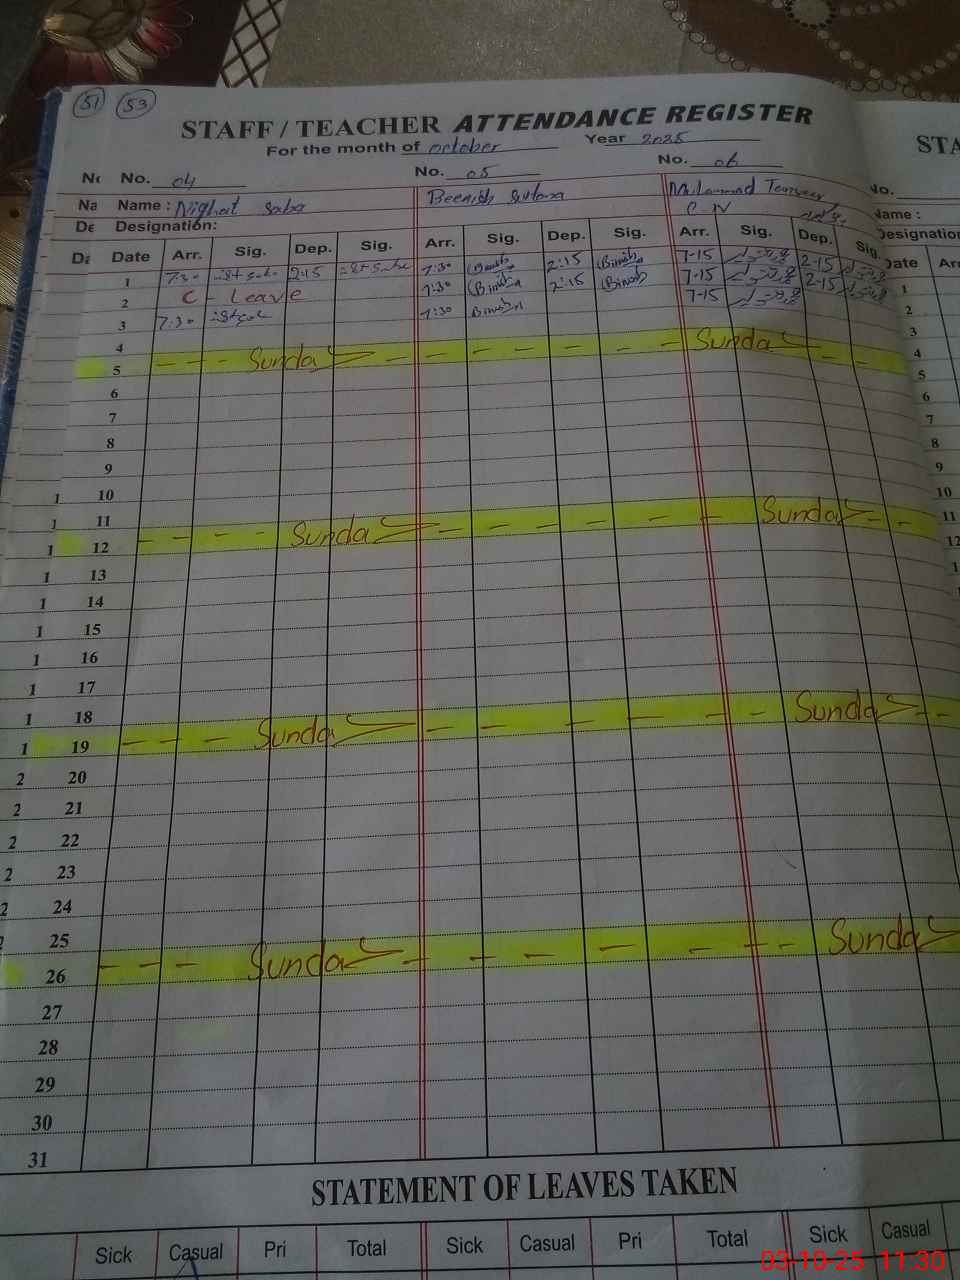 51 53
STAFF / TEACHER ATTENDANCE REGISTER
For the month of october Year 2025
No. 04 No. 05 No. 06
Name : Nighat Saba Beenish Sultana Muhammad Tanveer
Designation:
Date Arr. Sig. Dep. Sig. Arr. Sig. Dep. Sig. Arr. Sig. Dep. Sig.
1 7:30 2:15 7:30 2:15 7-15 2-15
2 C - Leave 7:30 2:15 7-15 2-15
3 7:30 7:30 7-15
4
5 Sunday Sunday
6
7
8
9
10
11
12 Sunday Sunday
13
14
15
16
17
18
19 Sunday Sunday
20
21
22
23
24
25
26 Sunday Sunday
27
28
29
30
31
STATEMENT OF LEAVES TAKEN
Sick Casual Pri Total Sick Casual Pri Total Sick Casual
03-10-25 11:30